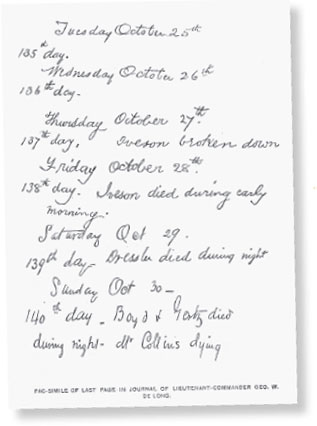 Tuesday October 25th
135th day.
Wednesday October 26th
136th day.
Thursday October 27th.
137th day. Iveson broken down
Friday October 28th.
138th day. Iveson died during early
morning.
Saturday Oct 29.
139th day - Dressler died during night
Sunday Oct 30 -
140th day - Boyd & Gortz died
during night - Mr Collins dying
FAC-SIMILE OF LAST PAGE IN JOURNAL OF LIEUTENANT-COMMANDER GEO. W.
DE LONG.